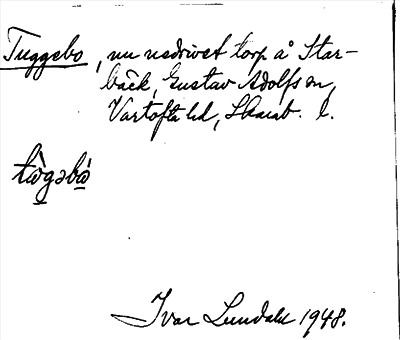 Tuggebo, nu nedrivet torp å Star-
bäck, Gustav Adolfs sn,
Vartofta hd, Skarab. l.
tὼgəbὼ
Ivar Lundahl 1948.